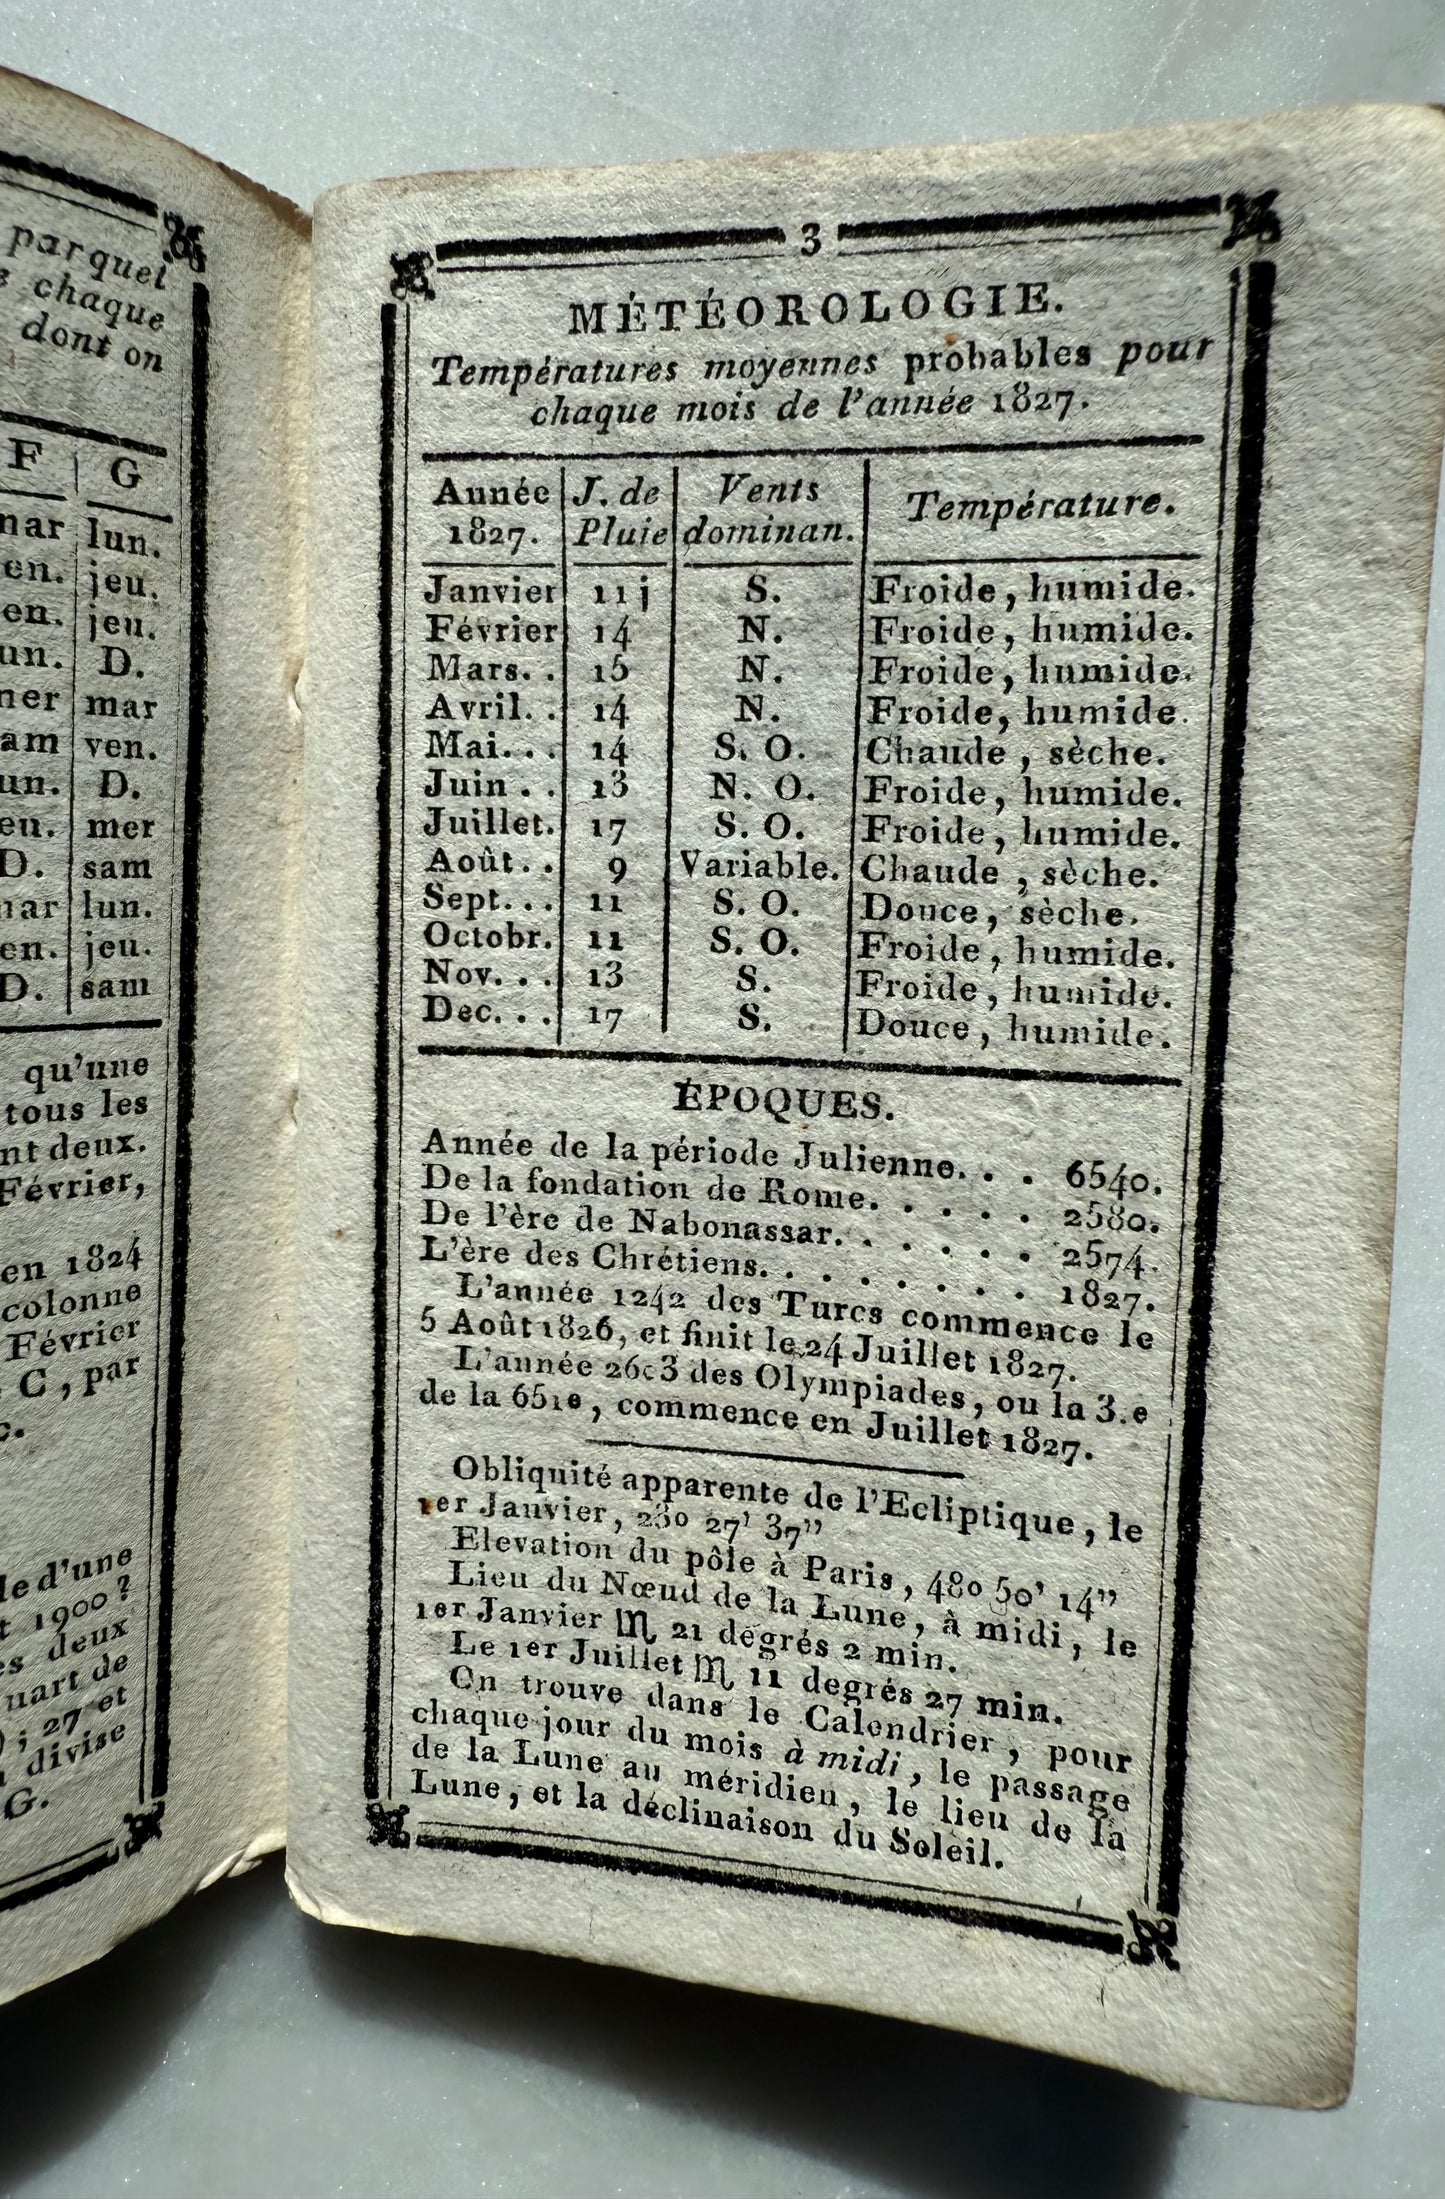 par quel
chaque
dont on
F G
mar lun.
en. jeu.
en. jeu.
un. D.
mer mar
am ven.
un. D.
eu. mer
D. sam
mar lun.
en. jeu.
D. sam
qu'une
tous les
nt deux.
Février,
en 1824
colonne
Février
C, par
c.
le d'une
t 1900?
es deux
uart de
); 27 et
divise
G.
3
MÉTÉOROLOGIE.
Températures moyennes probables pour
chaque mois de l'année 1827.
Année 1827. J. de Pluie Vents dominan. Température.
Janvier 11 j S. Froide, humide.
Février 14 N. Froide, humide.
Mars.. 15 N. Froide, humide.
Avril.. 14 N. Froide, humide.
Mai... 14 S. O. Chaude, sèche.
Juin.. 13 N. O. Froide, humide.
Juillet. 17 S. O. Froide, humide.
Août.. 9 Variable. Chaude, sèche.
Sept... 11 S. O. Douce, sèche.
Octobr. 11 S. O. Froide, humide.
Nov... 13 S. Froide, humide.
Dec... 17 S. Douce, humide.
ÉPOQUES.
Année de la période Julienne... 6540.
De la fondation de Rome..... 2580.
De l'ère de Nabonassar...... 2574.
L'ère des Chrétiens........ 1827.
L'année 1242 des Turcs commence le
5 Août 1826, et finit le 24 Juillet 1827.
L'année 2603 des Olympiades, ou la 3.e
de la 651e, commence en Juillet 1827.
Obliquité apparente de l'Ecliptique, le
1er Janvier, 23o 27' 37"
Elevation du pôle à Paris, 48o 50' 14"
Lieu du Nœud de la Lune, à midi, le
1er Janvier ♏ 21 degrés 2 min.
Le 1er Juillet ♏ 11 degrés 27 min.
On trouve dans le Calendrier, pour
chaque jour du mois à midi, le passage
de la Lune au méridien, le lieu de la
Lune, et la déclinaison du Soleil.